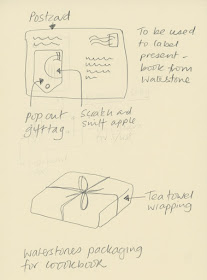 Postcard
To be used
to label
present -
book from
Waterstone
Pop out
gift tag.
Scratch and
sniff apple
Tea towel
wrapping
Waterstones packaging
for cookbook